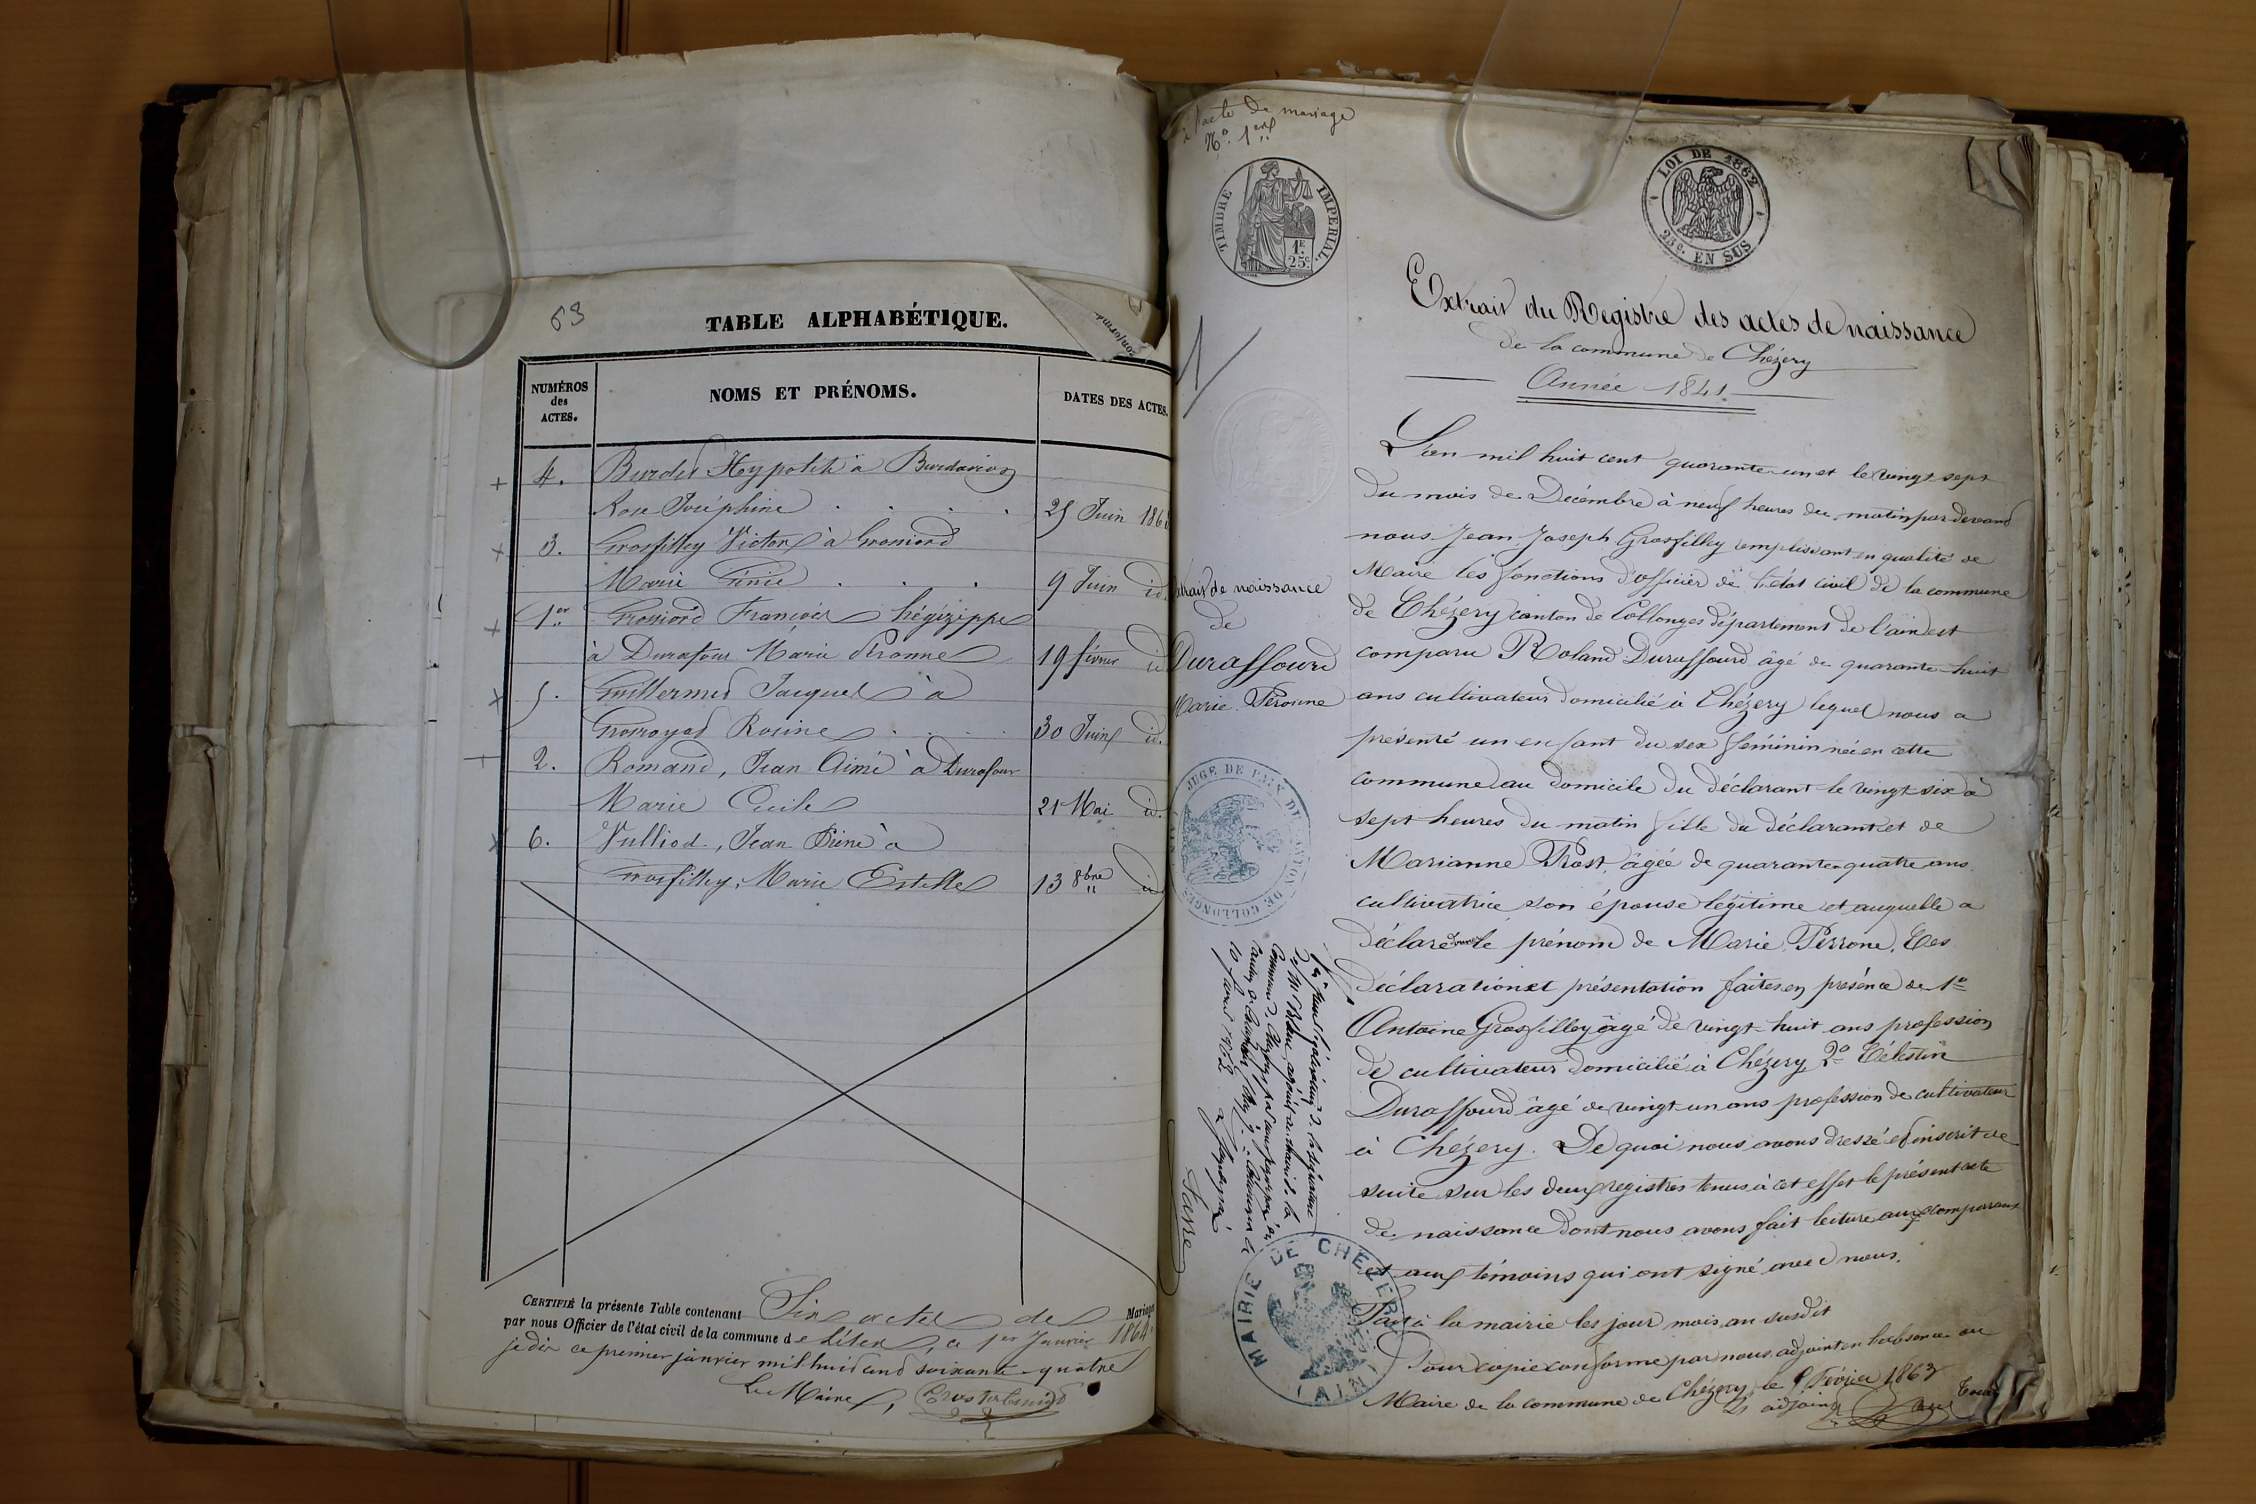 63
TABLE ALPHABÉTIQUE.
NUMÉROS
des
ACTES.
NOMS ET PRÉNOMS.
DATES DES ACTES.
4. Burdet Hyppolite à
Rose Joséphine 25 Juin 186
3. Grosfilley Victor à Grossiord
Marie 9 Juin id.
1er Grossiord François hégézippe
à Durafour Marie Péronne 19 février id
5. Guillermet Jacques à
Rosine 30 Juin id.
2. Romand, Jean Aimé à Durafour
Marie Cécile 21 Mai id.
6. Vulliod, Jean à
Grosfilley, Marie Estelle 13 8bre id
CERTIFIÉ la présente Table contenant Six actes de Mariages
par nous Officier de l'état civil de la commune de Lélex, ce 1er Janvier 1864
je dis ce premier janvier mil huit cent soixante-quatre
Le Maire,
à l'acte de mariage
No. 1er
TIMBRE IMPERIAL.
1F
25C
LOI DE 1862
25C. EN SUS
Extrait du Registre des actes de naissance
de la commune de Chézery
Année 1841
1
extrait de naissance
de
Duraffourd
Marie Péronne
L'an mil huit cent quarante-un et le vingt sept
du mois de Décembre à neuf heures du matin par devant
nous Jean Joseph Grosfilley remplissant en qualité de
Maire les fonctions d'officier de l'état civil de la commune
de Chézery canton de Collonges département de l'ain est
comparu Roland Duraffourd âgé de quarante-huit
ans cultivateur domicilié à Chézery lequel nous a
présenté un enfant du sex féminin née en cette
commune au domicile du déclarant le vingt six à
sept heures du matin fille du déclarant et de
Marianne Prost, âgée de quarante-quatre ans
cultivatrice son épouse légitime et auquelle a
déclaré donner le prénom de Marie Perrone. Les
déclaration et présentation faites en présence de 1o
Antoine Grosfilley âgé de vingt-huit ans profession
de cultivateur domicilié à Chézery 2o Célestin
Duraffourd âgé de vingt un ans profession de cultivateur
à Chézery. De quoi nous avons dressé et inscrit de
suite sur les deux registres tenus à cet effet le présent acte
de naissance dont nous avons fait lecture aux comparants
et aux témoins qui ont signé avec nous.
Fait à la mairie les jour mois an susdit
Pour copie conforme par nous adjoint en l'absence du
Maire de la commune de Chézery, le Février 1863
adjoint
JUGE DE PAIX DU CANTON DE COLLONGES
MAIRIE DE CHEZERY
(AIN)